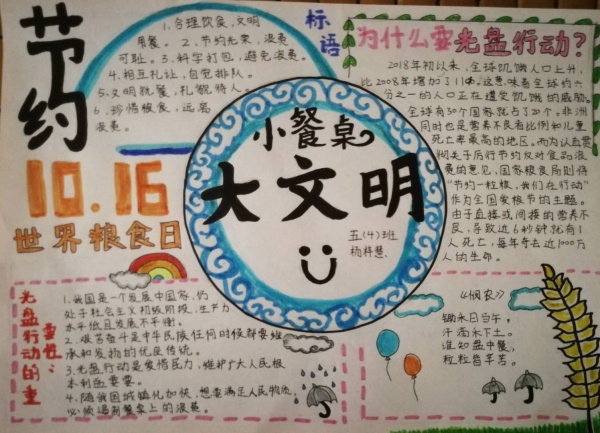 节约
10.16
世界粮食日
标语
1.合理饮食,文明
用餐。2.节约光荣,浪费
可耻。3.科学打包,避免浪费。
4.相互礼让,自觉排队。
5.文明就餐,礼貌待人。
6.珍惜粮食,远离
浪费。
小餐桌
大文明
五(4)班
杨梓慧
为什么要光盘行动?
2018年初以来,全球饥饿人口上升,
比2008年增加了11%。这意味着全球约六
分之一的人口正在遭受饥饿的威胁。
全球有30个国家就占了20个。非洲
同时也是营养不良者比例和儿童
死亡率最高的地区。而为认真贯
彻关于厉行节约反对食品浪
费的意见,国家粮食局则将
“节约一粒粮,我们在行动”
作为全国爱粮节的主题。
由于直接或间接的营养不
良,导致这6秒钟就有1
人死亡,每年夺去近1000万
人的生命。
光盘行动的重要性:
1.我国是一个发展中国家,仍
处于社会主义初级阶段,生产力
水平低且发展不平衡。
2.艰苦奋斗是中华民族任何时候都要继
承和发扬的优良传统。
3.光盘行动是爱惜民力,维护广大人民根
本利益要要。
4.随我国城镇化加快,想要满足人民物质,
必须遏制餐桌上的浪费。
《悯农》
锄禾日当午,
汗滴禾下土。
谁知盘中餐,
粒粒皆辛苦。